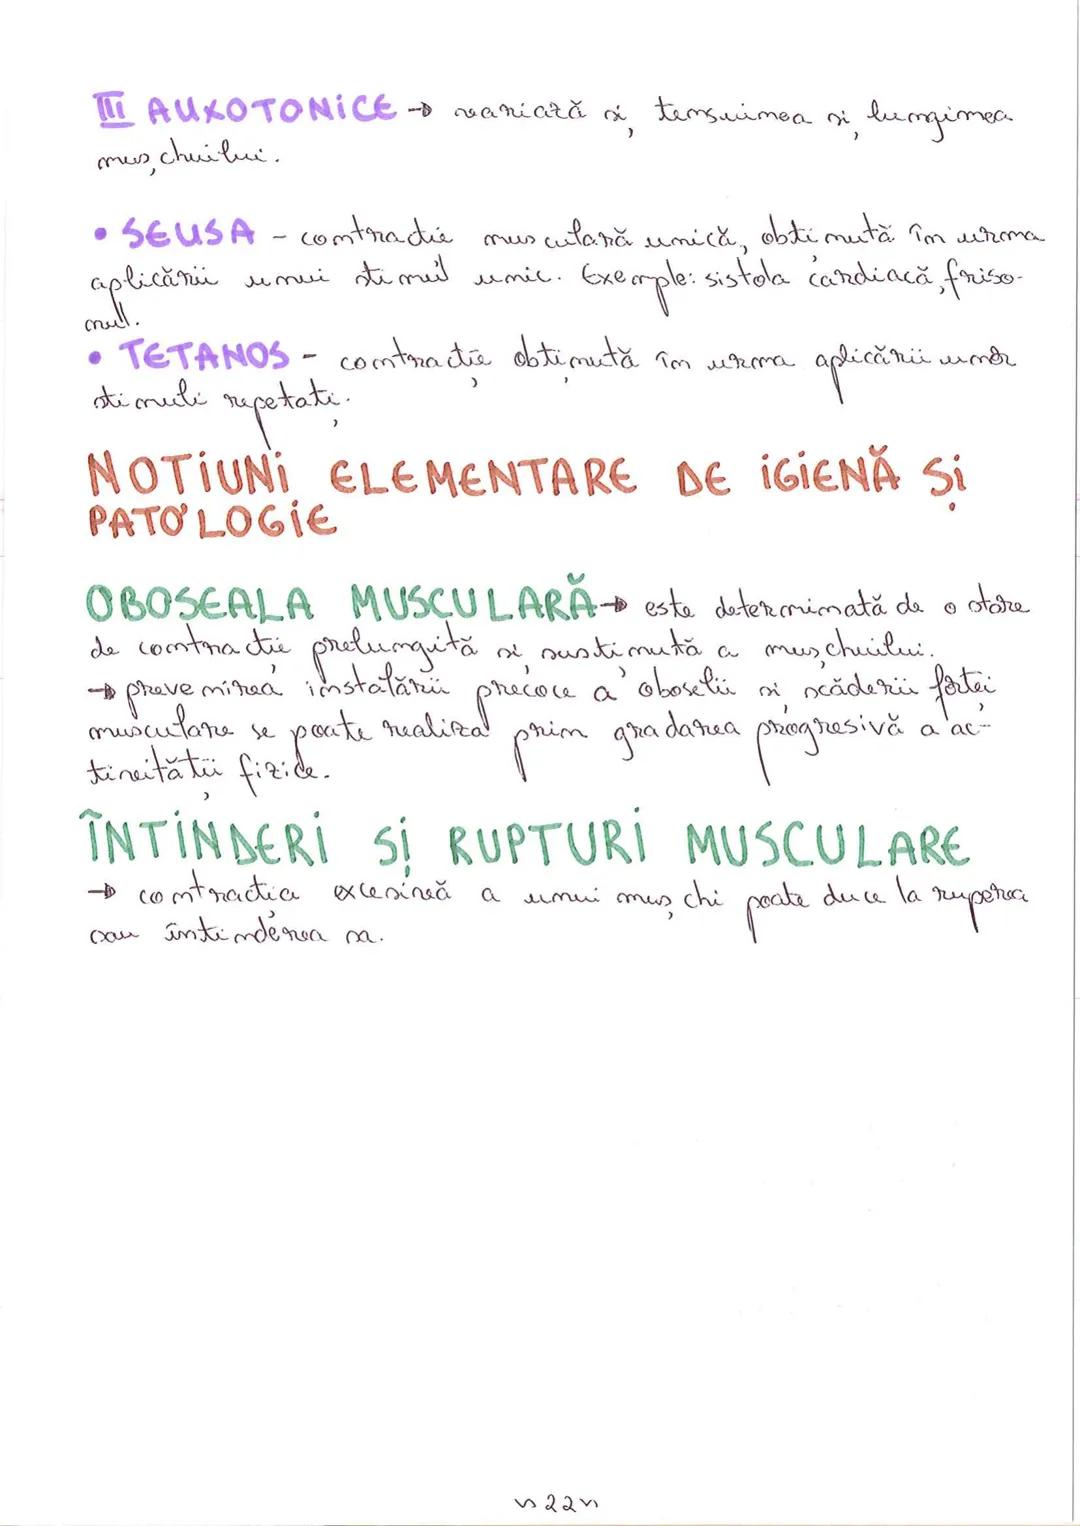 III AUXOTONICE → variază și tensiunea și lungimea
mușchiului.
• SEUSA - contracție musculară unică, obținută în urma
aplicării unui stimul unic. Exemple: sistola cardiacă, friso-
nul.
• TETANOS - contracție obținută în urma aplicării unor
stimuli repetați.
NOȚIUNI ELEMENTARE DE IGIENĂ ȘI
PATOLOGIE
OBOSEALA MUSCULARĂ → este determinată de o stare
de contracție prelungită și susținută a mușchiului.
→ prevenirea instalării precoce a oboselii și scăderii forței
musculare se poate realiza prin gradarea progresivă a ac-
tivității fizice.
ÎNTINDERI ȘI RUPTURI MUSCULARE
→ contracția excesivă a unui mușchi poate duce la ruperea
sau întinderea sa.
~22~